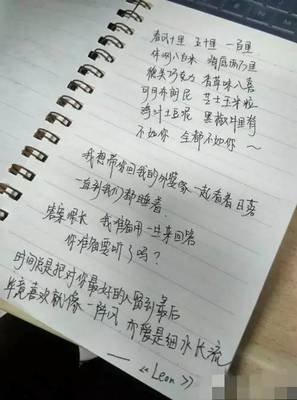 春风十里 五十里 一百里
体测八百米 海底两万里
德芙巧克力 香草味八喜
可可布朗尼 芝士玉米粒
鸡汁土豆泥 黑椒牛里脊
不如你 全都不如你~
我想带你回我的外婆家 一起看着日落
一直到我们都睡着
答案很长 我准备用一生来回答
你准备要听了吗?
时间总是把对你最好的人留到最后
毕竟喜欢就像一阵风 而爱是细水长流
—《Leon》